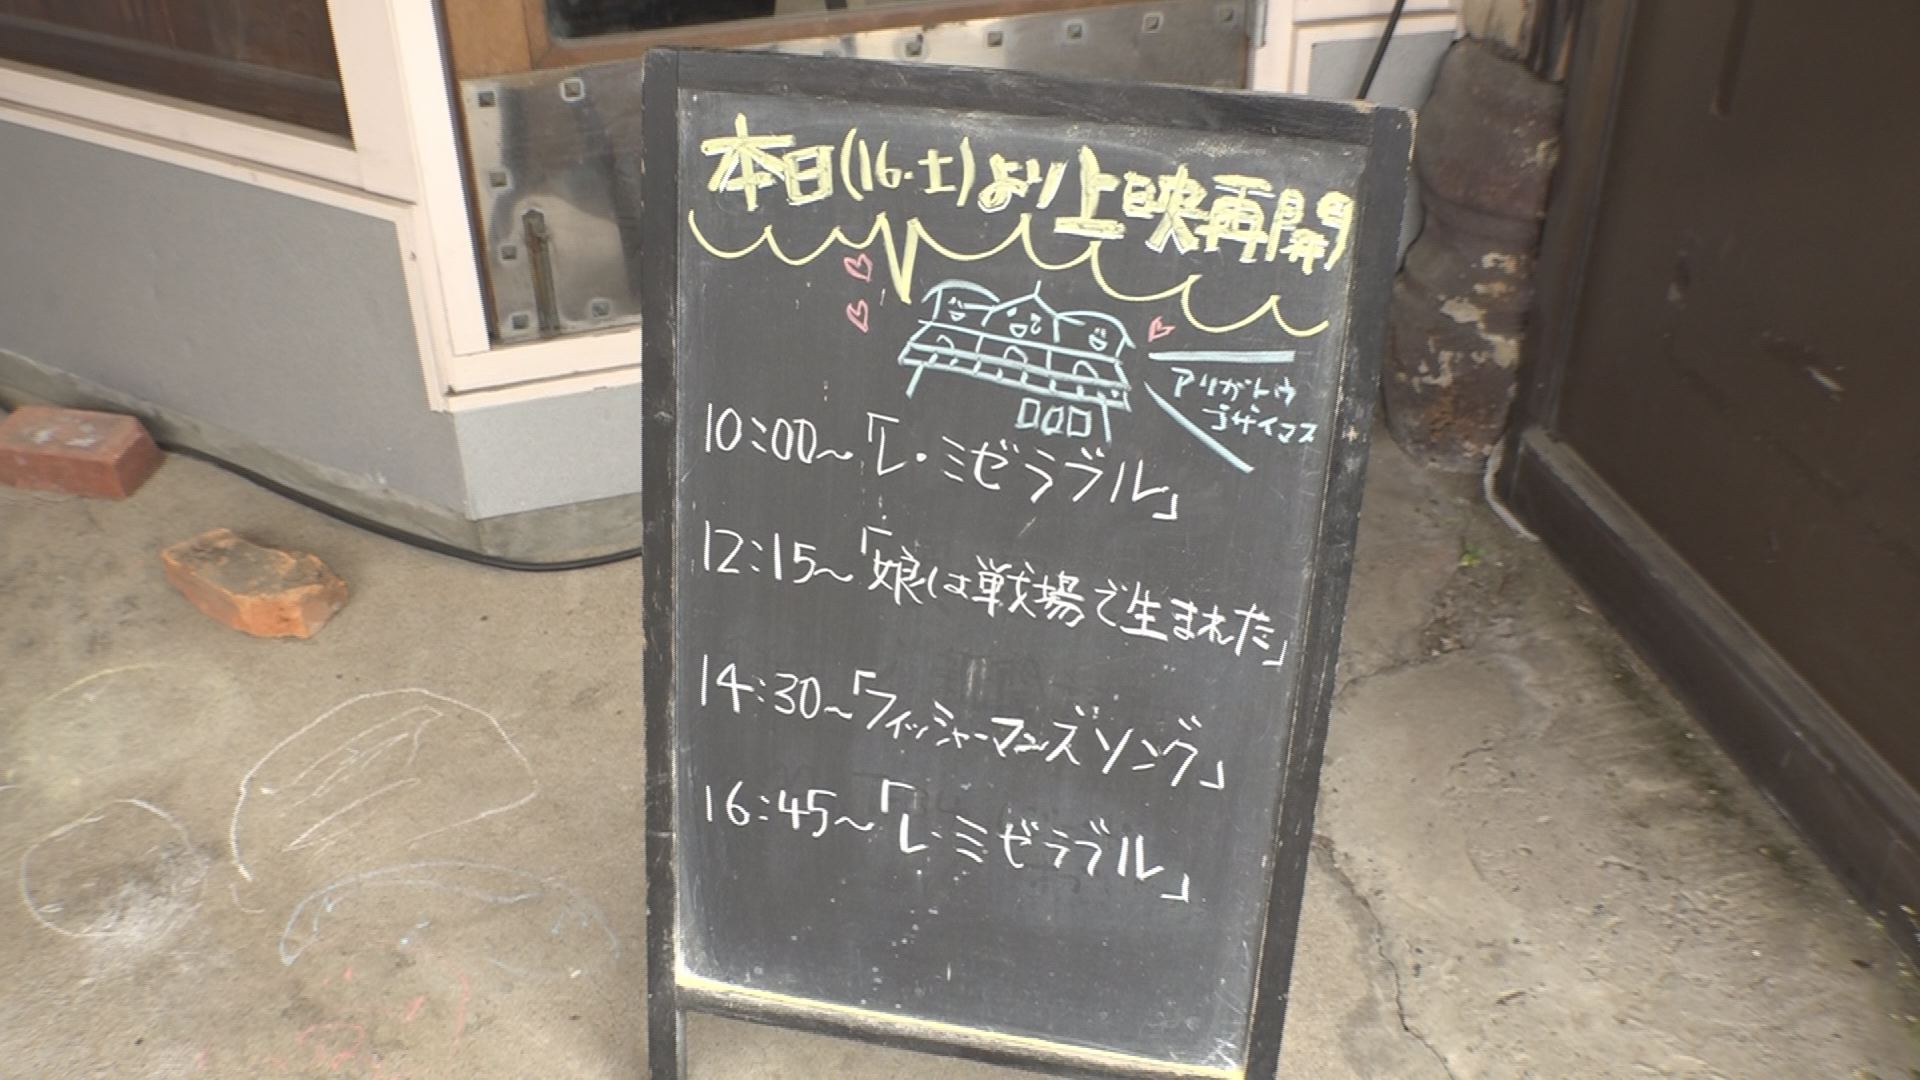 本日(16.土)より上映再開
アリガトウ
ゴザイマス
10:00~「レ・ミゼラブル」
12:15~「娘は戦場で生まれた」
14:30~「フィッシャーマンズソング」
16:45~「レ・ミゼラブル」